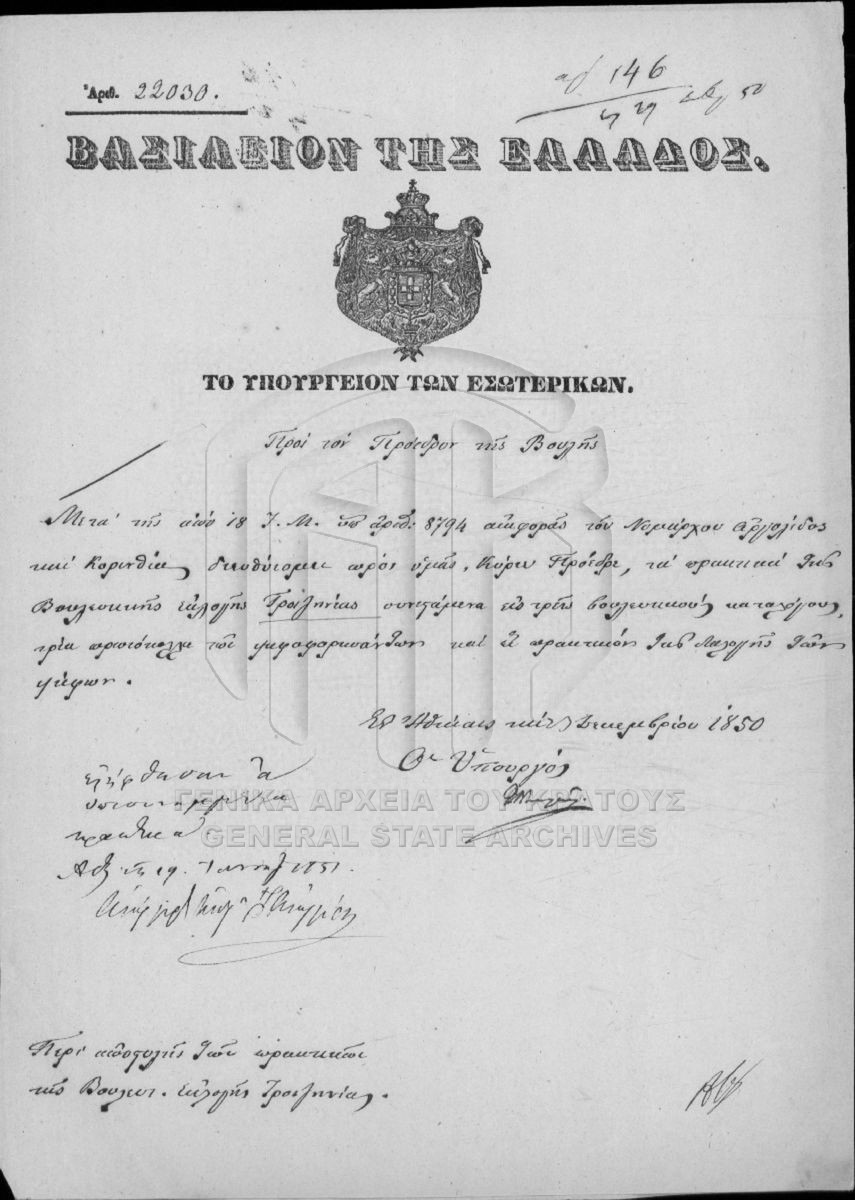 Ἀριθ. 22030.
αρ 146
29 50
ΒΑΣΙΛΕΙΟΝ ΤΗΣ ΕΛΛΑΔΟΣ.
ΤΟ ΥΠΟΥΡΓΕΙΟΝ ΤΩΝ ΕΣΩΤΕΡΙΚΩΝ.
Πρός τόν Πρόεδρον τῆς Βουλῆς
Μετά τῆς ἀπό 18 Ἰ. Μ. ὑπ ἀριθ: 8794 ἀναφορᾶς τοῦ Νομάρχου Ἀργολίδος
καί Κορινθίας διευθύνομεν πρός ὑμᾶς, Κύριε Πρόεδρε, τά πρακτικά τῆς
Βουλευτικῆς ἐκλογῆς Τροιζηνίας συνιστάμενα εἰς τρεῖς βουλευτικούς καταλόγους,
τρία πρωτόκολλα τῶν ψηφοφορησάντων καί ἓν πρακτικόν τῆς διαλογῆς τῶν
ψήφων.
Ἐν Ἀθήναις τῇ Δεκεμβρίου 1850
Ὁ Ὑπουργός
Ἐλήφθησαν τα
πρακτικά.
19 1851.
ΓΕΝΙΚΑ ΑΡΧΕΙΑ ΤΟΥ ΚΡΑΤΟΥΣ
GENERAL STATE ARCHIVES
Περί ἀποστολῆς τῶν πρακτικῶν
τῆς Βουλευτ. ἐκλογῆς Τροιζηνίας.